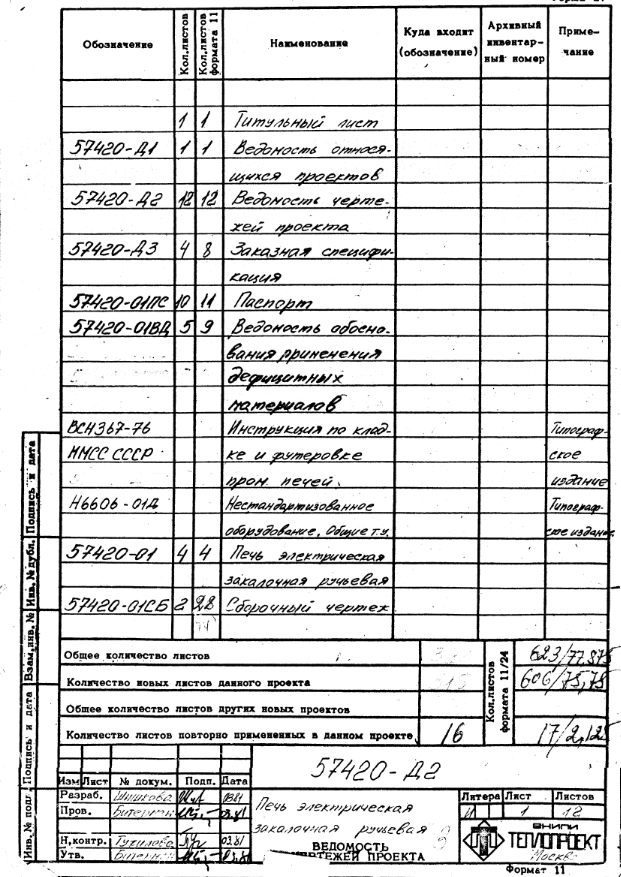 Обозначение
Кол.листов
Кол.листов формата 11
Наименование
Куда входит (обозначение)
Архивный инвентар- ный номер
Приме- чание
1 1 Титульный лист
57420-Д1 1 1 Ведомость относя-
щихся проектов
57420-Д2 12 12 Ведомость черте-
жей проекта
57420-Д3 4 8 Заказная специфи-
кация
57420-01ПС 10 11 Паспорт
57420-01ВД 5 9 Ведомость обосно-
вания применения
дефицитных
материалов
ВСН367-76 Инструкция по клад- Типограф-
ММСС СССР ке и футеровке ское
пром. печей. издание
Н6606-01Д Нестандартизованное Типограф-
оборудование. Общие т.у. ское издание
57420-01 4 4 Печь электрическая
закалочная ручьевая
57420-01СБ 2 28 Сборочный чертеж
Общее количество листов
Количество новых листов данного проекта
Общее количество листов других новых проектов
Количество листов повторно примененных в данном проекте 16
Кол.листов формата 11/24
623/77,875
606/75,75
17/2,125
Инв.№ подл. Подпись и дата Взам.инв.№ Инв.№ дубл. Подпись и дата
57420-Д2
Изм Лист № докум. Подп. Дата
Разраб.
Пров.
Н.контр. 03.81
Утв.
Печь электрическая
закалочная ручьевая
ВЕДОМОСТЬ
ЧЕРТЕЖЕЙ ПРОЕКТА
Литера Лист Листов
И 1 12
ВНИПИ
ТЕПЛОПРОЕКТ
Москва
Формат 11